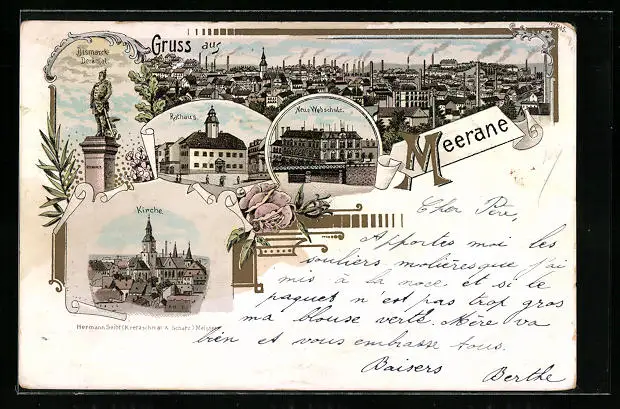 Bismarck-
Denkmal.
Gruss aus
Meerane
Rathaus.
Neue Webschule.
Kirche
Hermann Seibt (Kretzschmar & Schatz) Meissen
Cher Père,
Apportes moi les
souliers molières que j'ai
mis à la noce et si le
paquet n'est pas trop gros
ma blouse verte. Mère va
bien et vous embrasse tous.
Baisers
Berthe